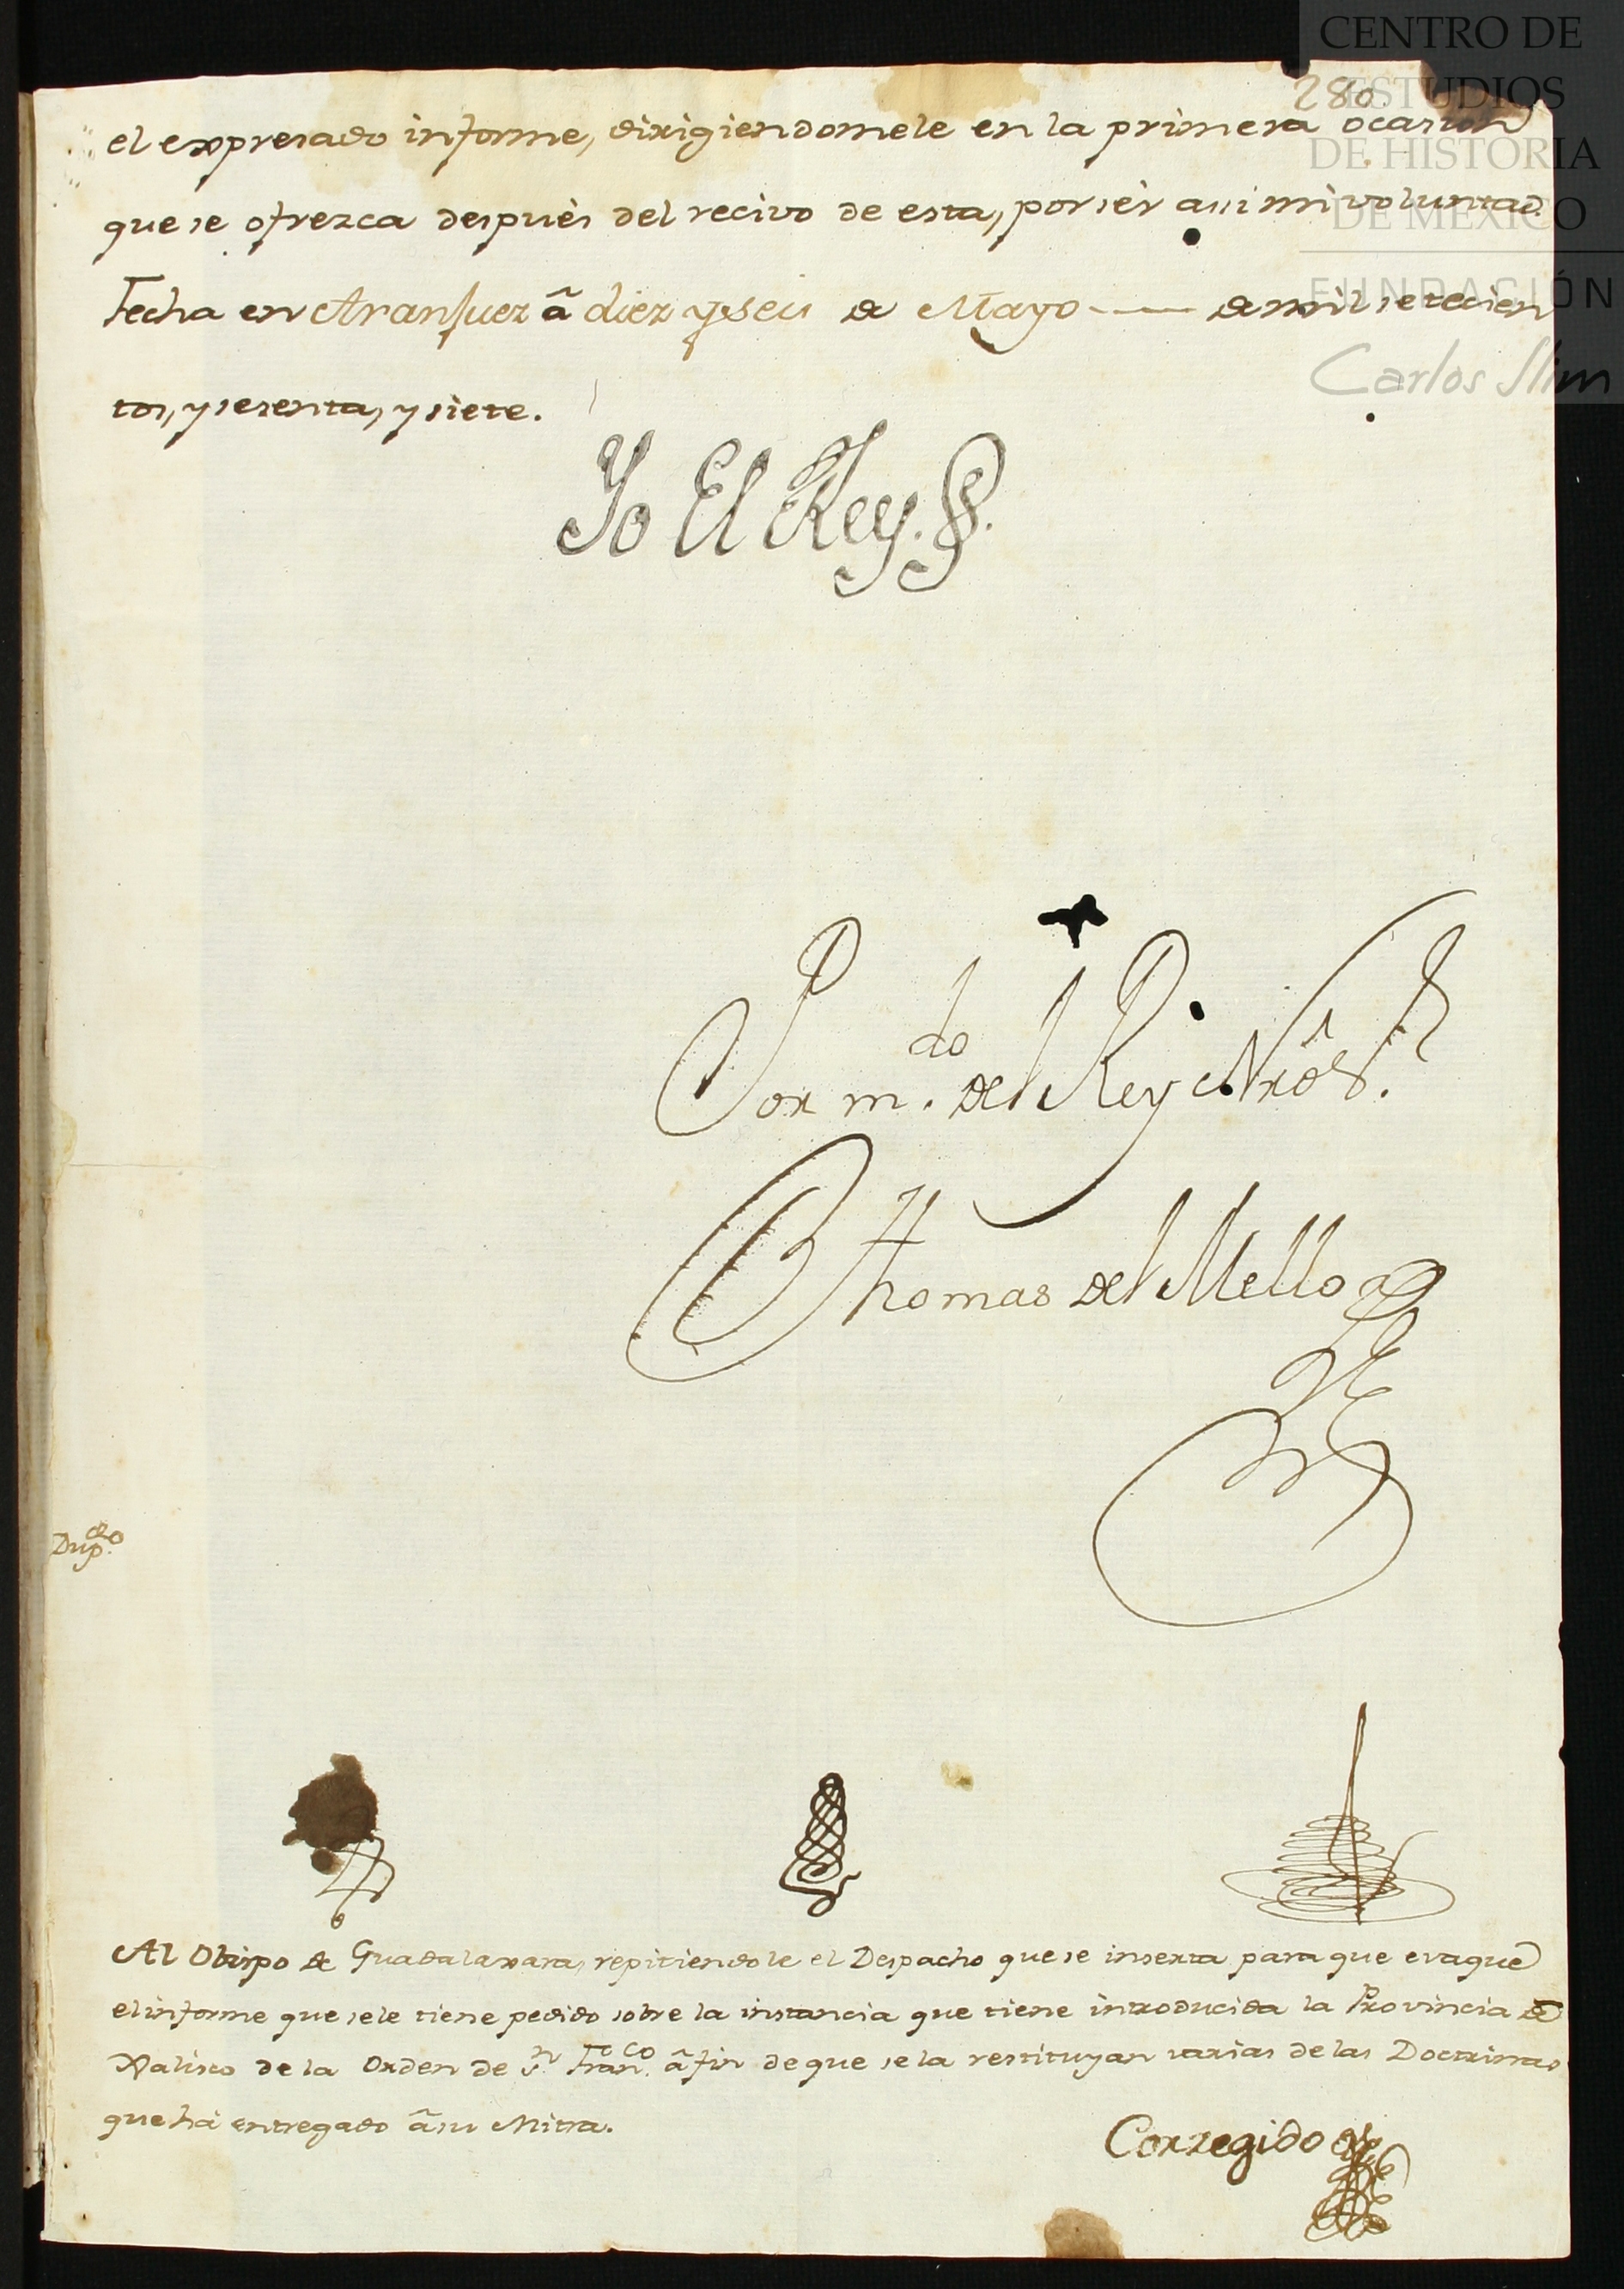 CENTRO DE
ESTUDIOS
DE HISTORIA
DE MÉXICO
FUNDACIÓN
Carlos Slim
280.
el expresado informe, dirigiendomele en la primera ocasion
que se ofrezca despuès del recivo de esta, por sèr assi mi voluntad.
Fecha en Aranjuez â diez y seis de Mayo — de mil setecien
tos, y sesenta, y siete.
Yo El Rey.
Por m.do del Rey Nro S.r
Thomas del Mello
Dup.do
Al Obispo de Guadalaxara, repitiendole el Despacho que se inserta para que evaque
el informe que se le tiene pedido sobre la instancia que tiene introducida la Provincia de
Xalisco de la Orden de S.n Fran.co â fin de que se la restituyan varias de las Doctrinas
que há entregado â su Mitra.
Corregido